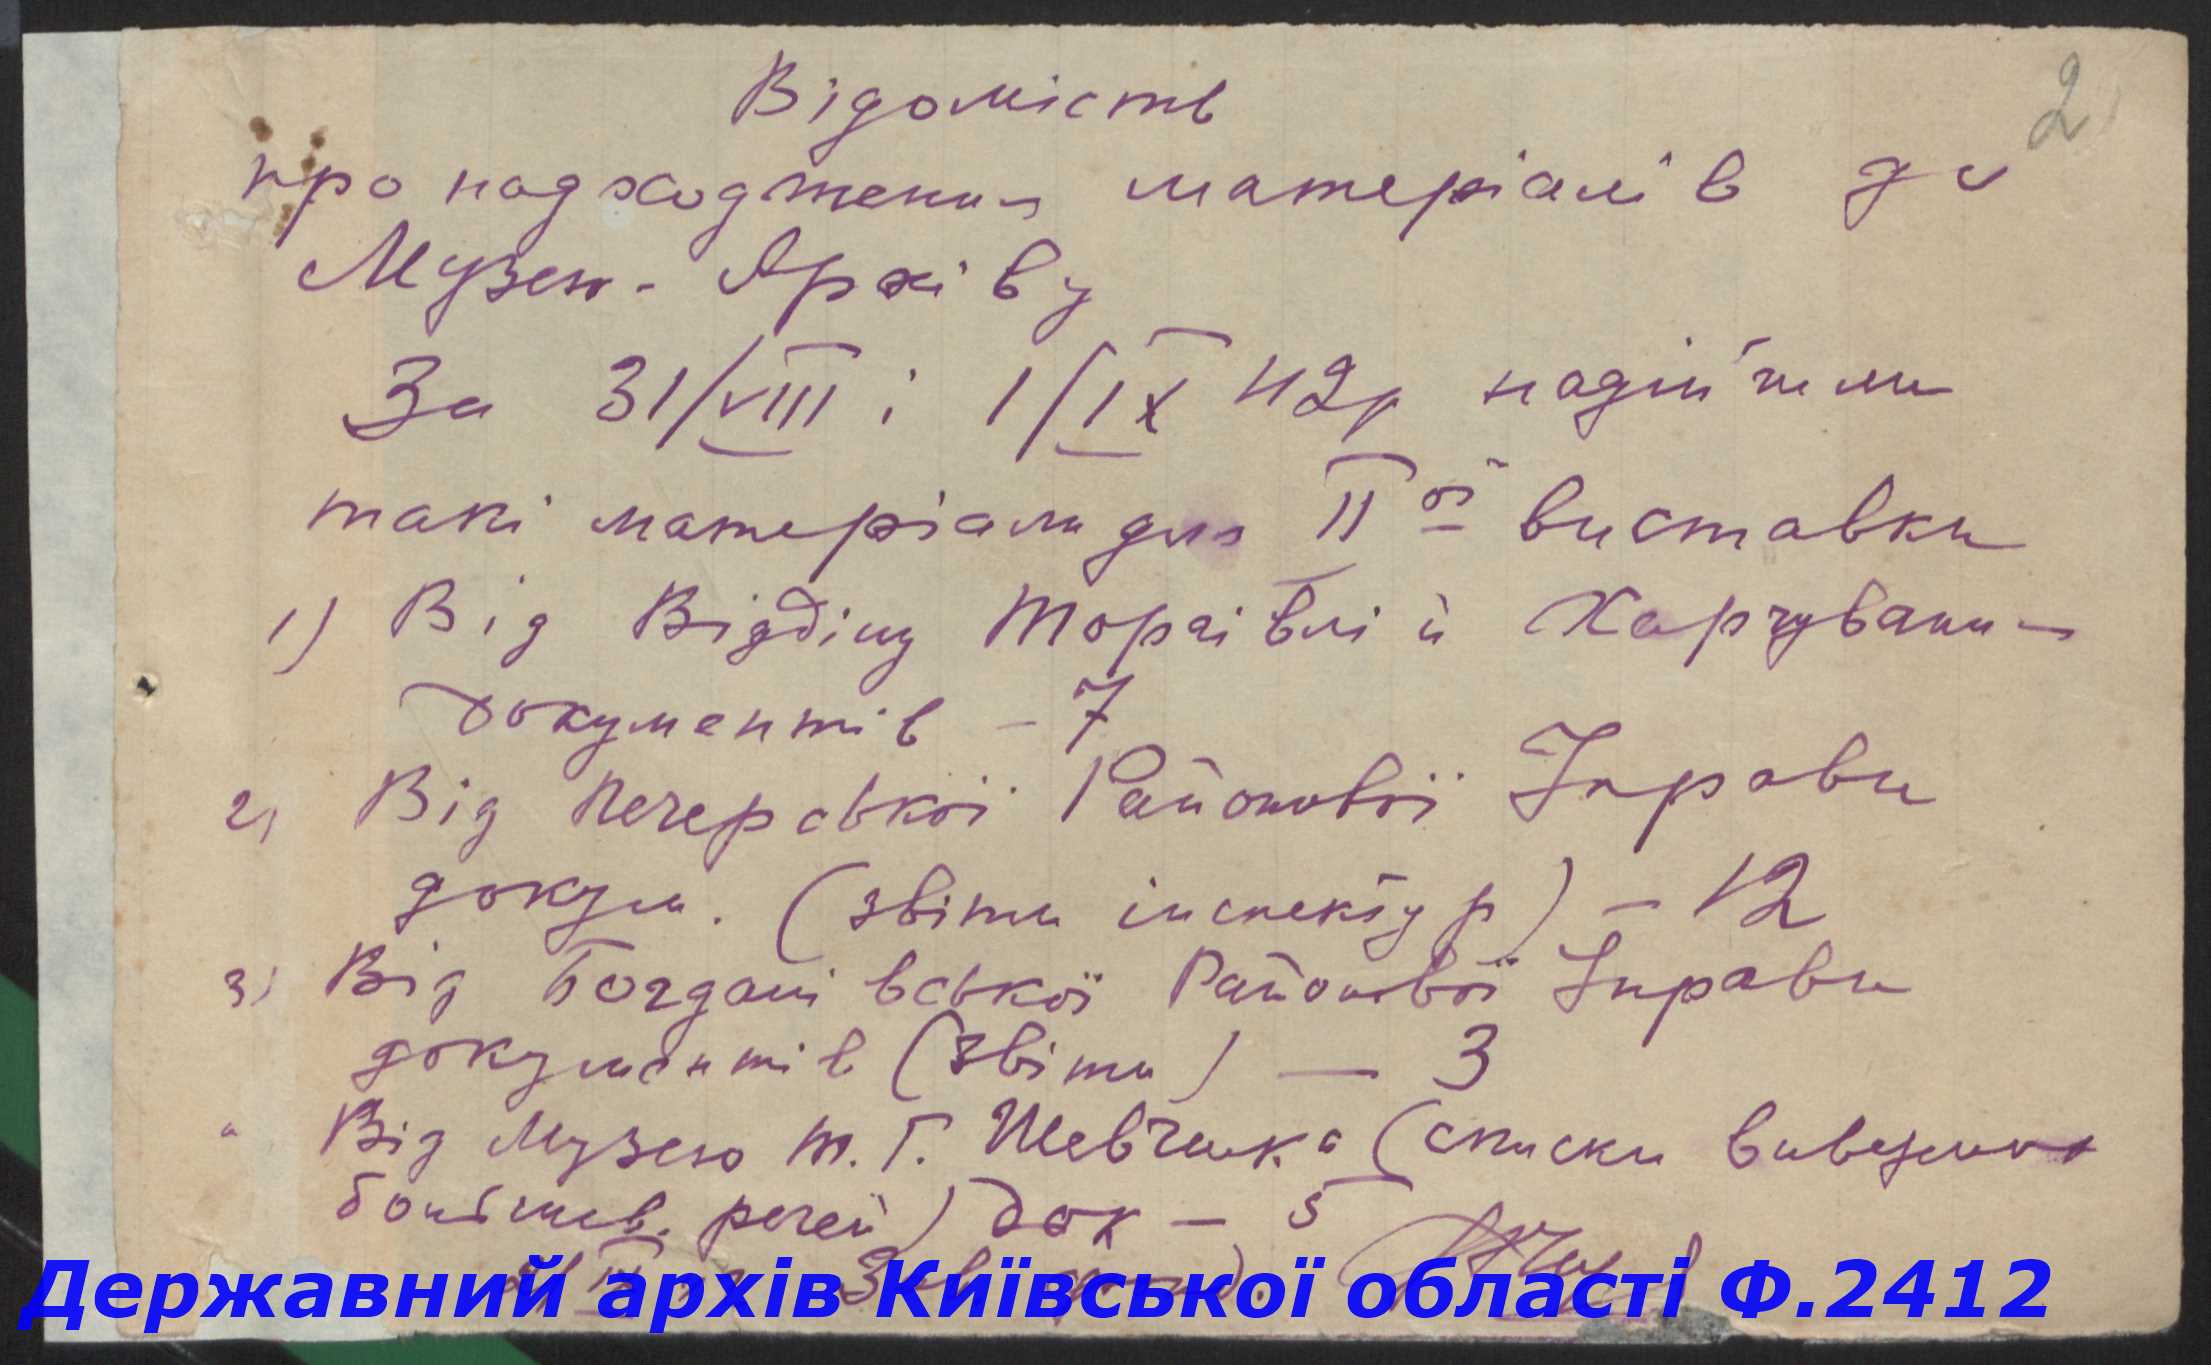 Відомість
2
про надходження матеріалів до
Музею-Архіву
За 31/VIII і 1/IX 42р надійшли
такі матеріали для IIої виставки
1) Від Відділу Торгівлі й Харчування
документів - 7
2) Від Печерської Районової Управи
докум. (звіти інспектур) - 12
3) Від Богданівської Районової Управи
документів (звіти) — 3
Від Музею Т. Г. Шевченка (списки вивезених
речей) док — 5
Зав.
Державний архів Київської області Ф.2412